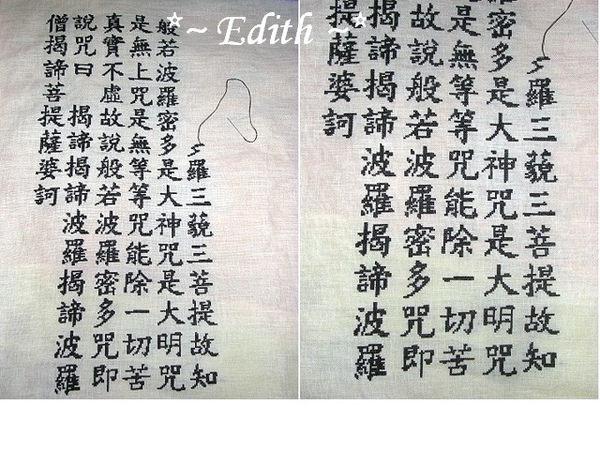 *~ Edith ~*
羅三藐三菩提故知
般若波羅密多是大神咒是大明咒
是無上咒是無等等咒能除一切苦
真實不虛故說般若波羅密多咒即
說咒曰 揭諦揭諦波羅揭諦波羅
僧揭諦菩提薩婆訶
羅三藐三菩提故知
密多是大神咒是大明咒
是無等等咒能除一切苦
故說般若波羅密多咒即
揭諦揭諦波羅揭諦波羅
提薩婆訶